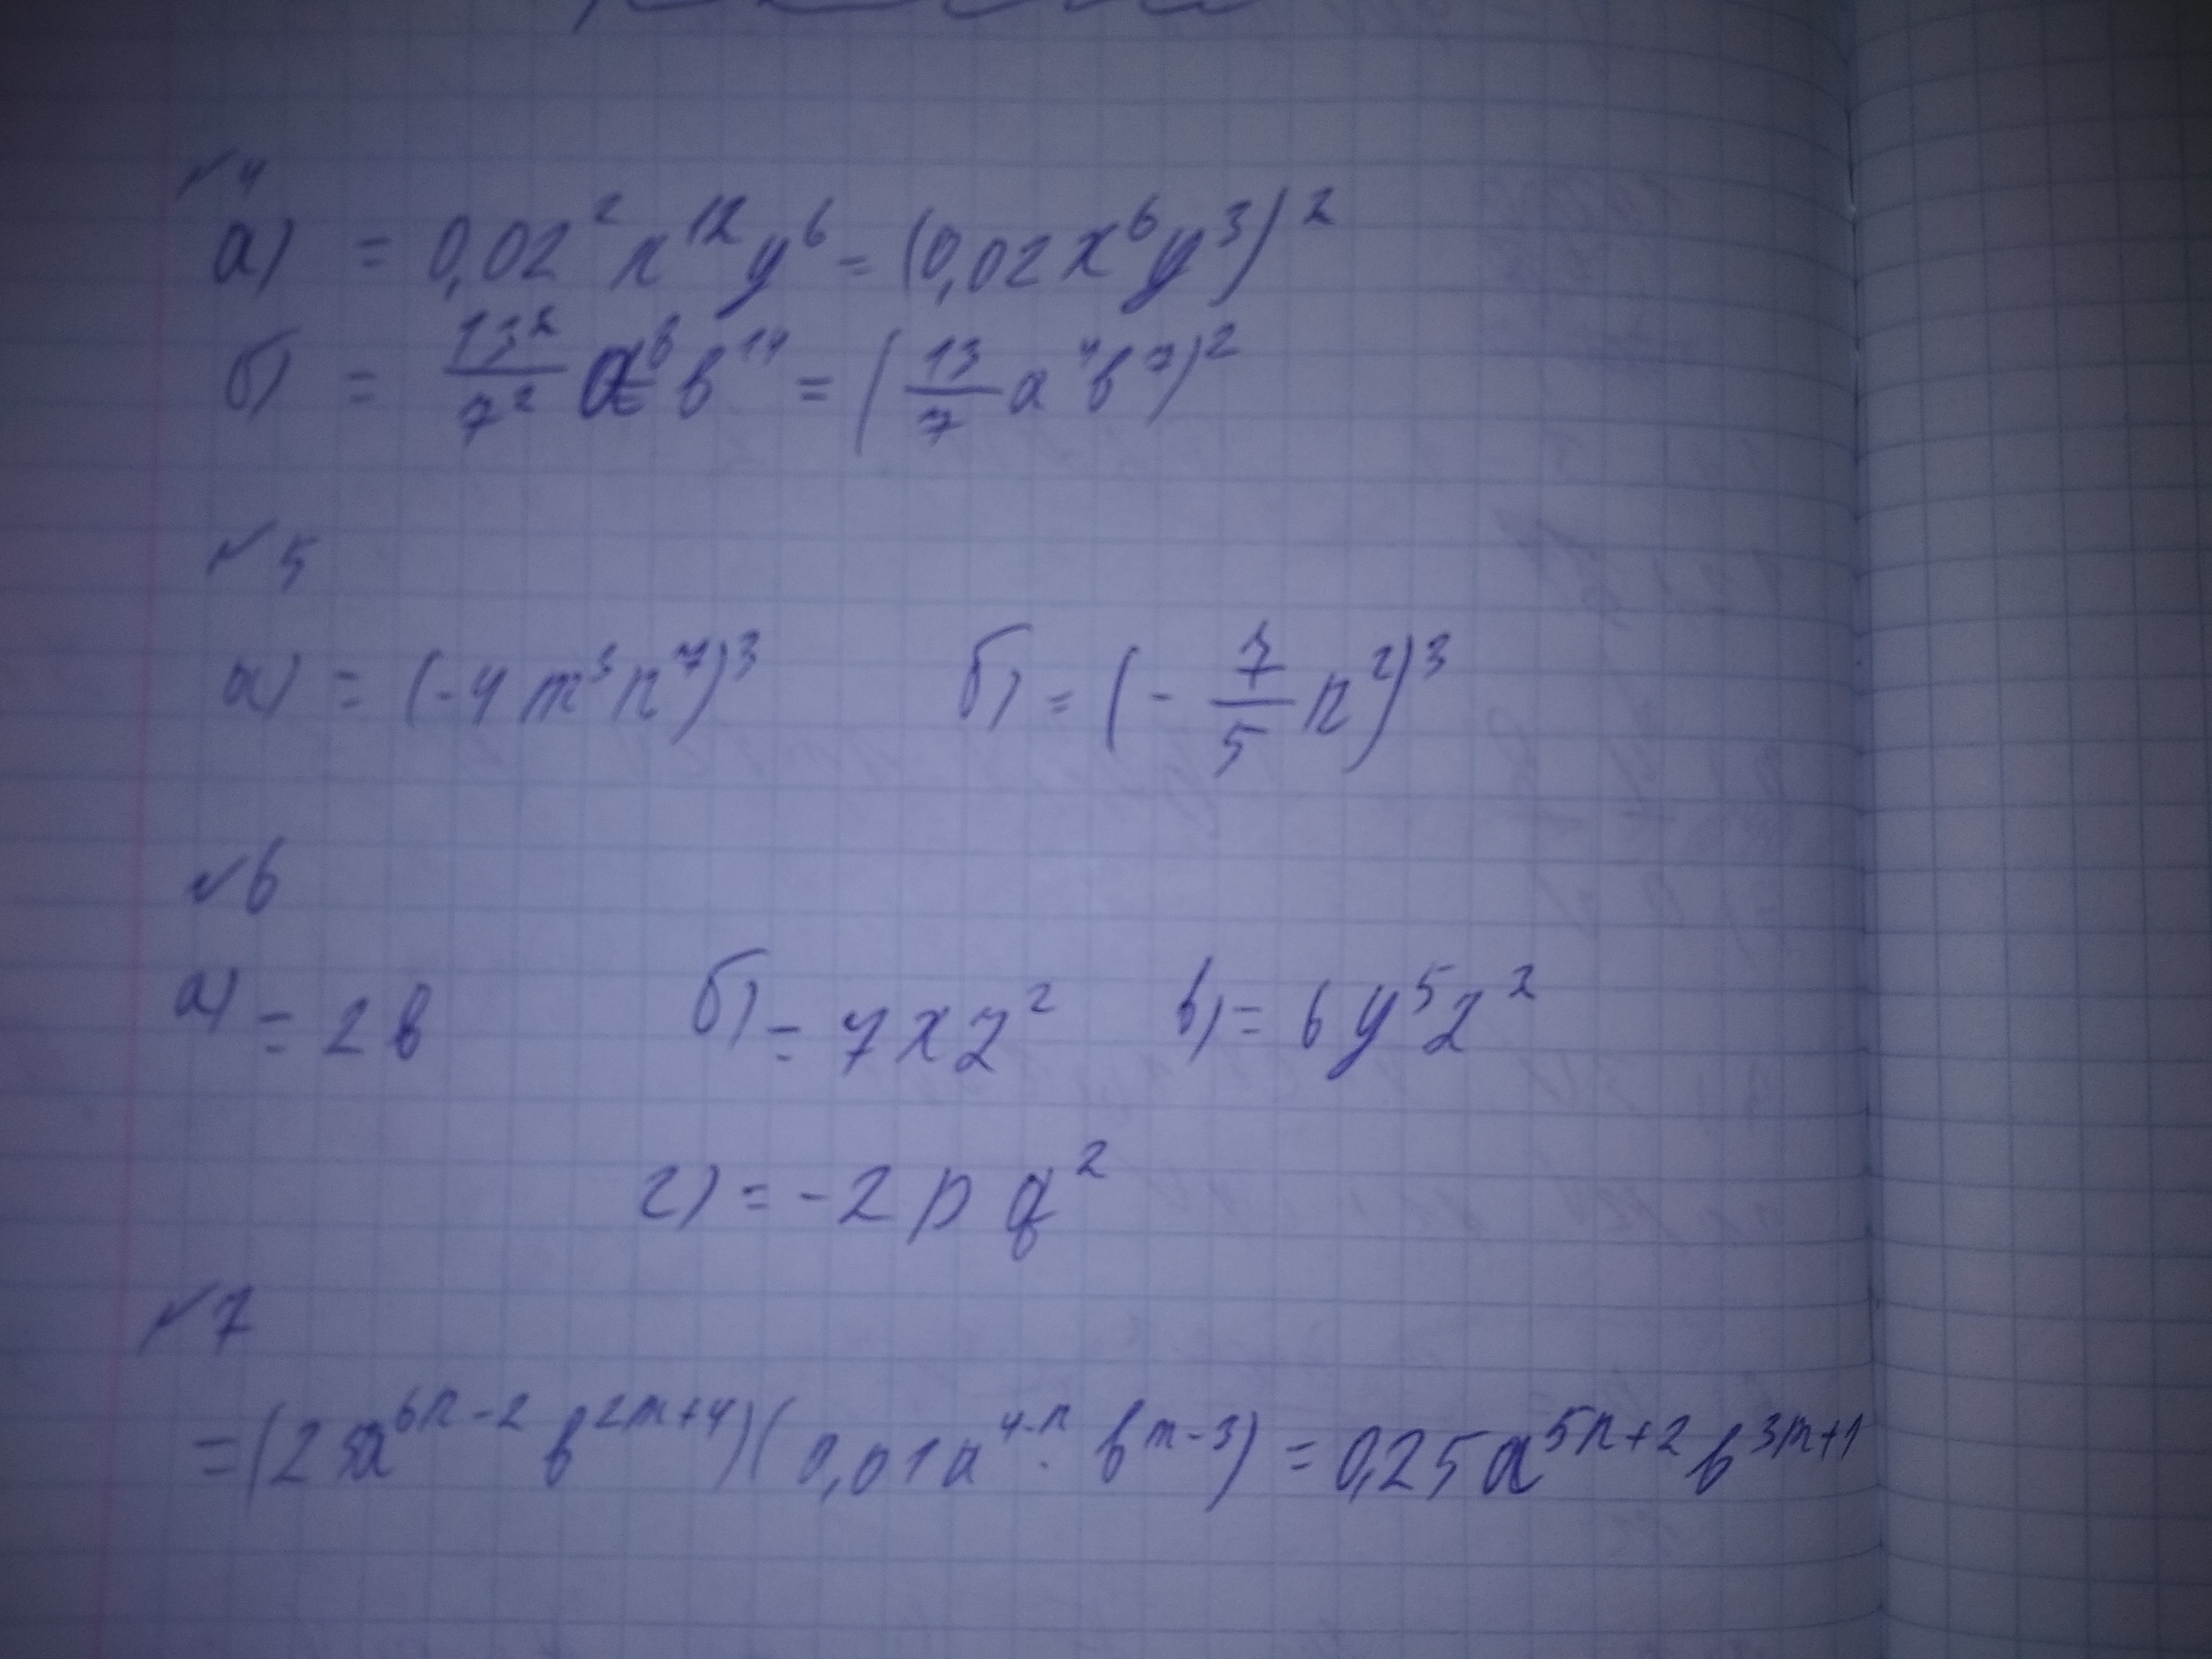 №4
а) = 0,02² x¹² y⁶ = (0,02 x⁶ y³)²
б) = 13²/7² a⁸ b¹⁴ = (13/7 a⁴ b⁷)²
№5
а) = (-4 m³ n⁷)³ б) = (- 7/5 n²)³
№6
а) = 2 b б) = 7 x z² в) = 6 y⁵ z²
г) = -2 p q²
№7
= (25a⁶ⁿ⁻² b²ᵐ⁺⁴)(0,01a⁴⁻ⁿ · bᵐ⁻³) = 0,25 a⁵ⁿ⁺² b³ᵐ⁺¹